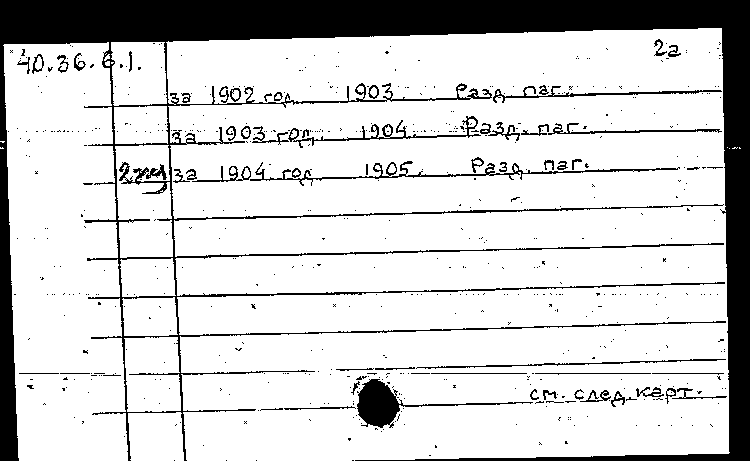 40.36.6.1. 2а
за 1902 год 1903. Разд. паг.
за 1903 год. 1904. Разд. паг.
за 1904 год 1905. Разд. паг.
см. след. карт.